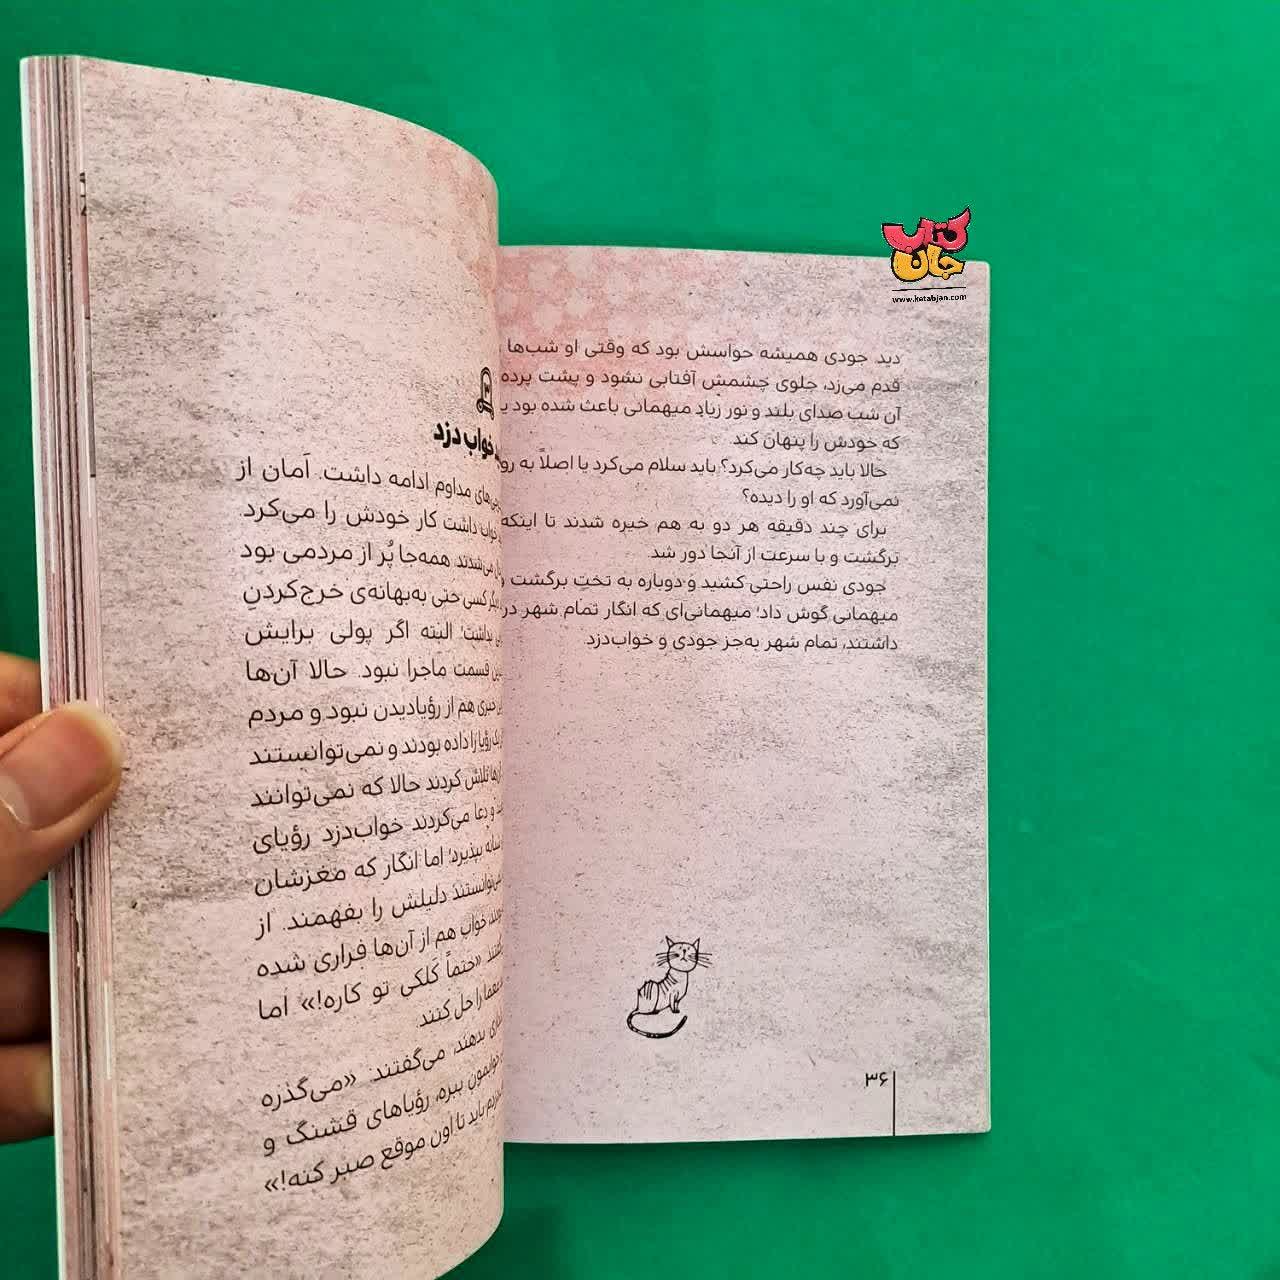 کتاب
جان
www.ketabjan.com
دید. جودی همیشه حواسش بود که وقتی او شب‌ها
قدم می‌زد، جلوی چشمش آفتابی نشود و پشت پرده
آن شب صدای بلند و نور زیادِ میهمانی باعث شده بود
که خودش را پنهان کند.
حالا باید چه‌کار می‌کرد؟ باید سلام می‌کرد یا اصلاً به
نمی‌آورد که او را دیده؟
برای چند دقیقه هر دو به هم خیره شدند تا اینکه
برگشت و با سرعت از آنجا دور شد.
جودی نفس راحتی کشید و دوباره به تختِ برگشت و
میهمانی گوش داد؛ میهمانی‌ای که انگار تمام شهر در
داشتند، تمام شهر به‌جز جودی و خواب‌دزد.
۳۶
خواب دزد
مداوم ادامه داشت. اَمان از
داشت کار خودش را می‌کرد.
می‌شدند. همه‌جا پُر از مردمی بود
کسی حتی به‌بهانه‌ی خرج‌کردنِ
البته اگر پولی برایش
قسمت ماجرا نبود. حالا آن‌ها
خبری هم از رؤیادیدن نبود و مردم
رؤیا را داده بودند و نمی‌توانستند
تلاش کردند حالا که نمی‌توانند
و دعا می‌کردند خواب‌دزد رؤیای
بپذیرد؛ اما انگار که مغزشان
دلیلش را بفهمند. از
خواب هم از آن‌ها فراری شده
«حتماً کَلکی تو کاره!» اما
را حل کنند.
بدهند، می‌گفتند: «می‌گذره
خوابمون ببره، رؤیاهای قشنگ و
باید تا اون موقع صبر کنه!»